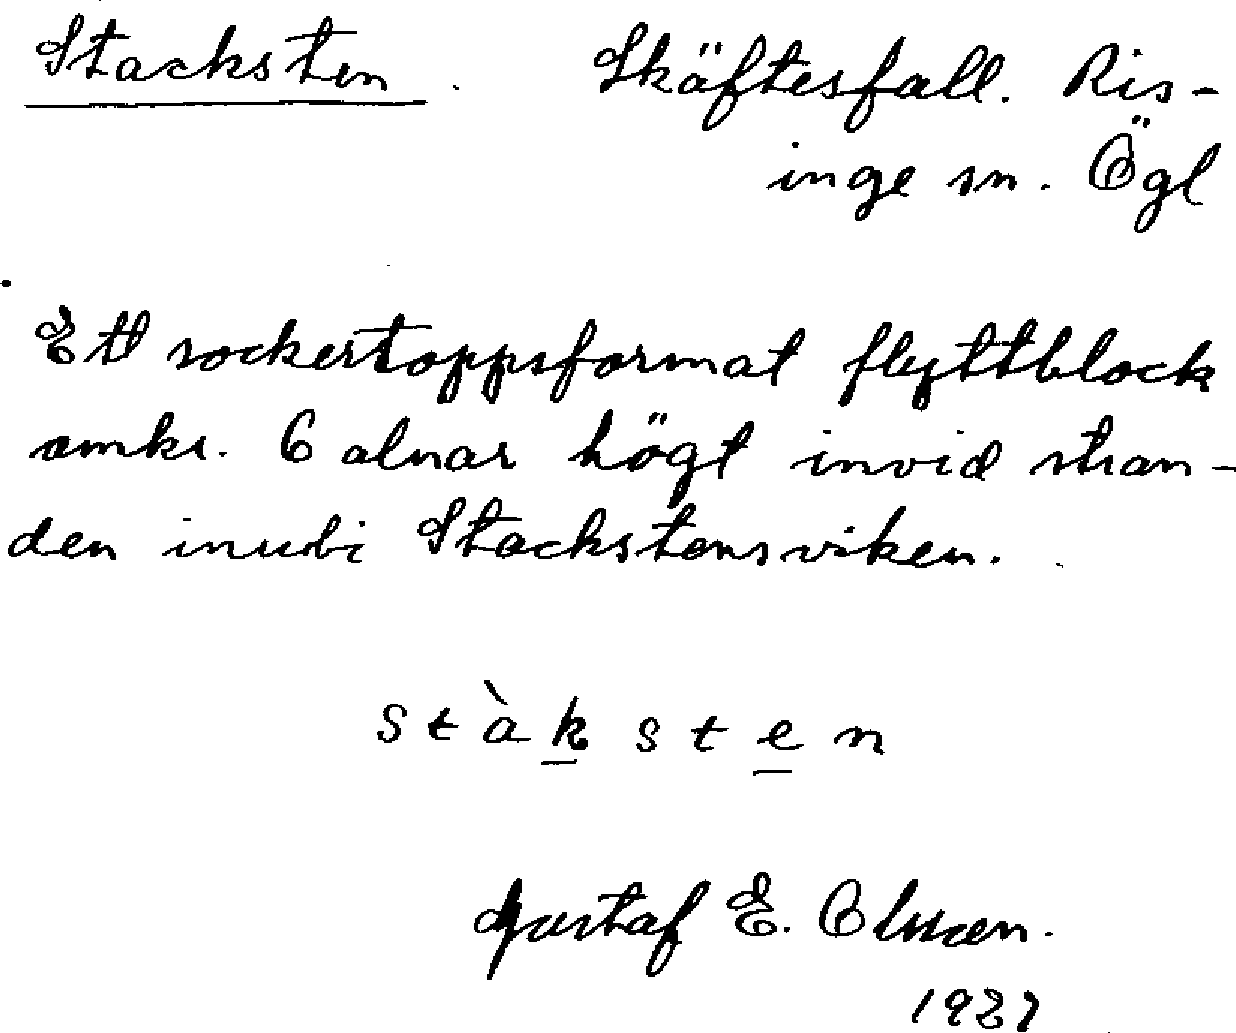 Stacksten. Skäftesfall. Ris-
inge sn. Ögl
Ett sockertoppsformat flyttblock
omkr. 6 alnar högt invid stran-
den inuti Stackstensviken.
stàksten
Gustaf E. Olsson.